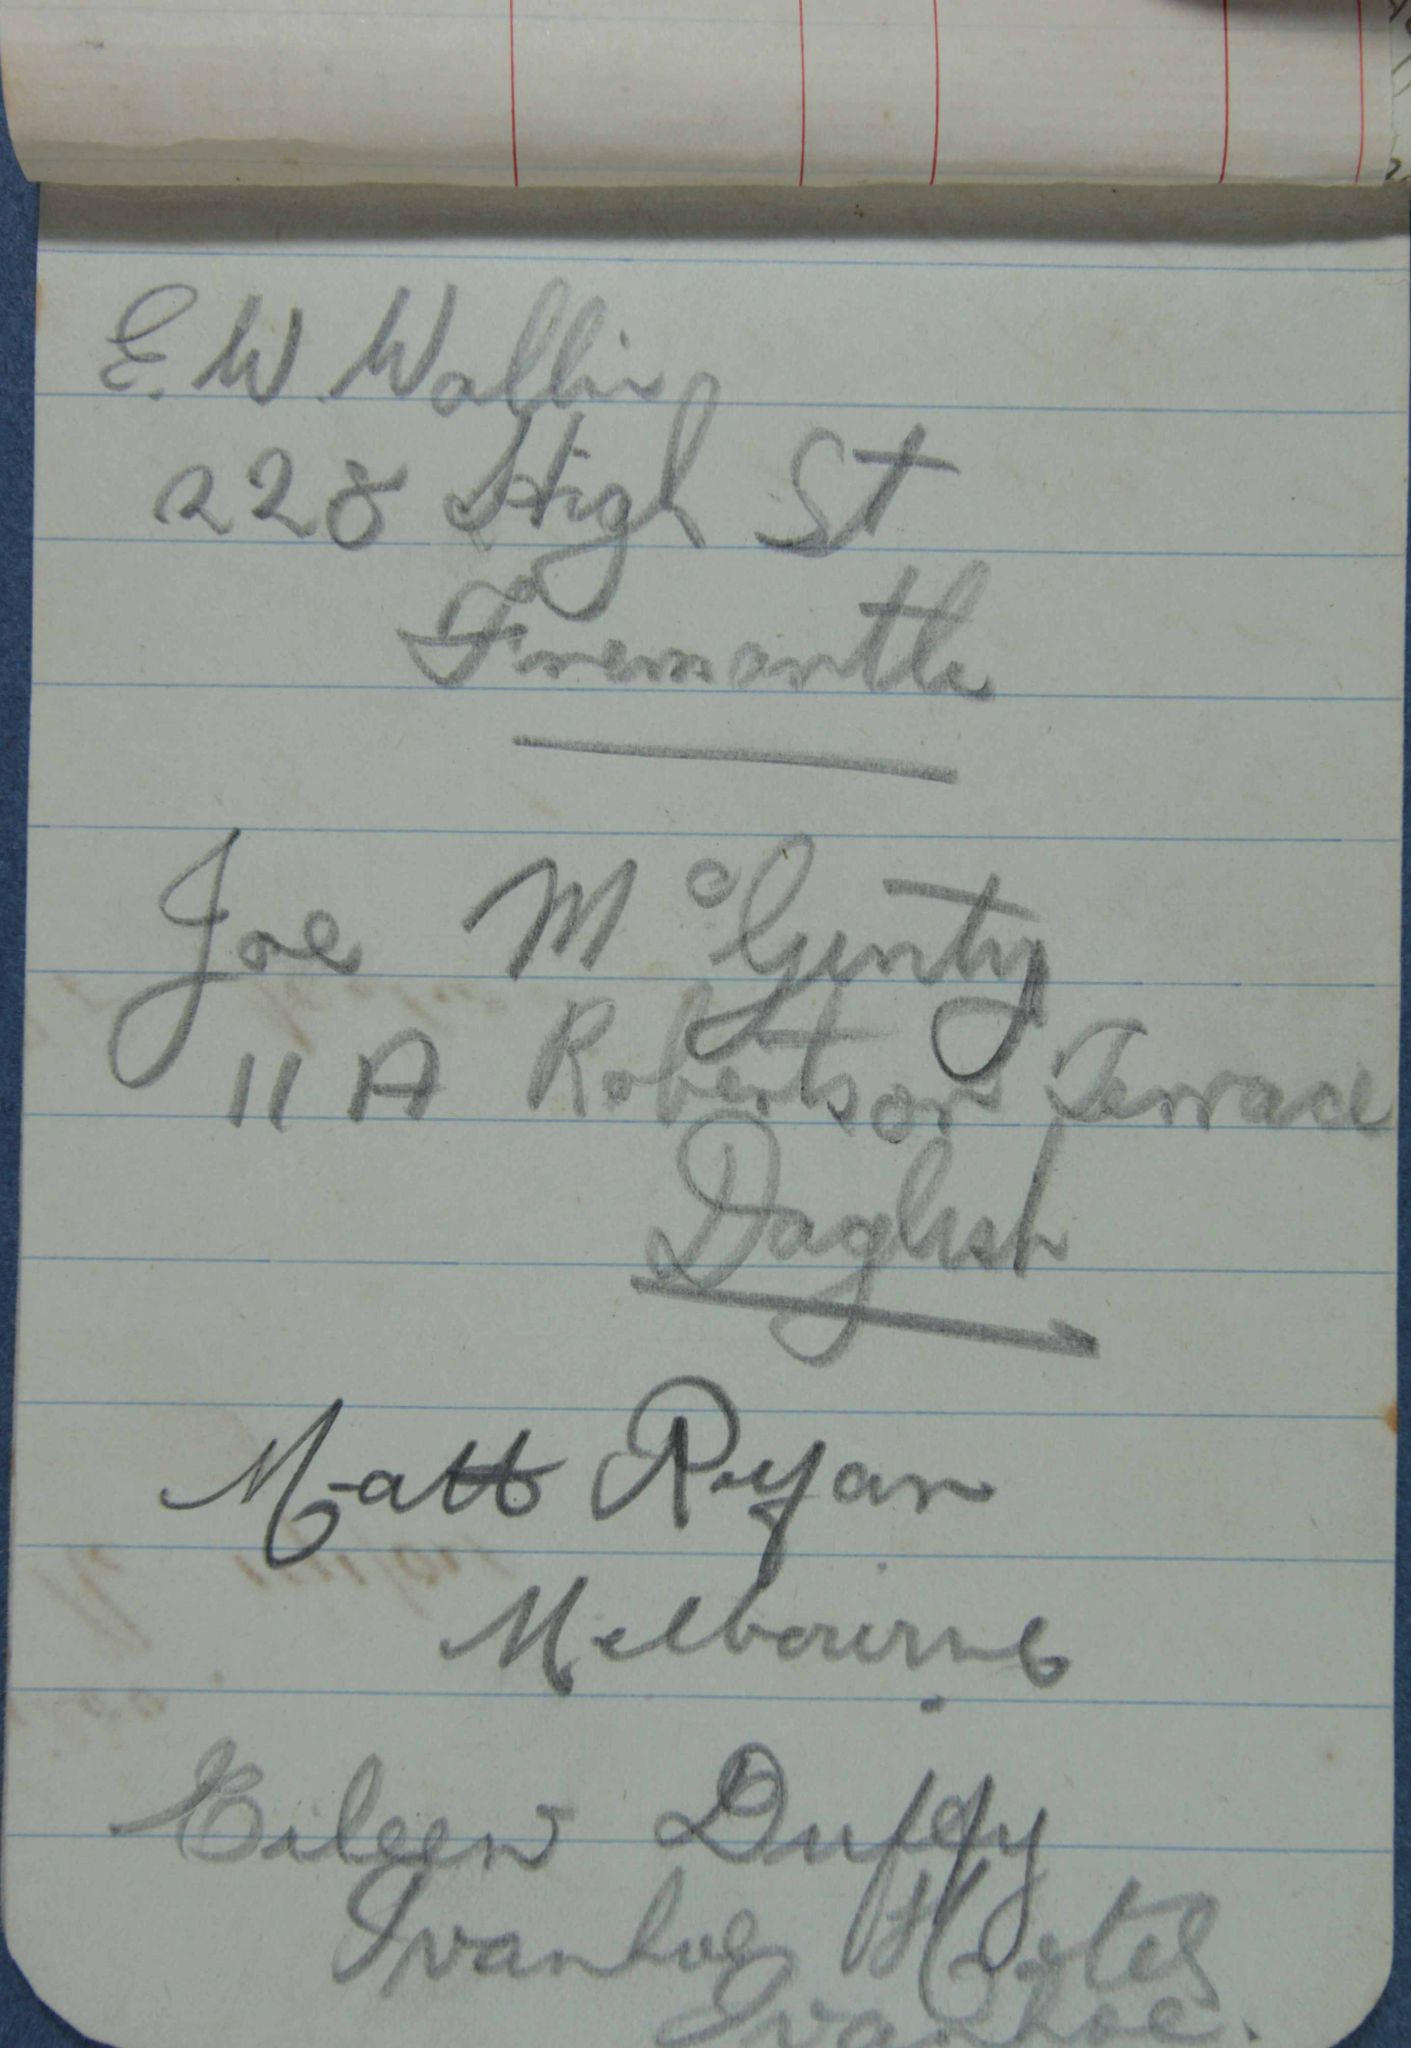 E. W. Wallis
228 High St
Fremantle
Joe McGinty
11A Robertson Terrace
Daglish
Matt Ryan
Melbourne
Eileen Duffy
Ivanhoe Hotel
Ivanhoe.